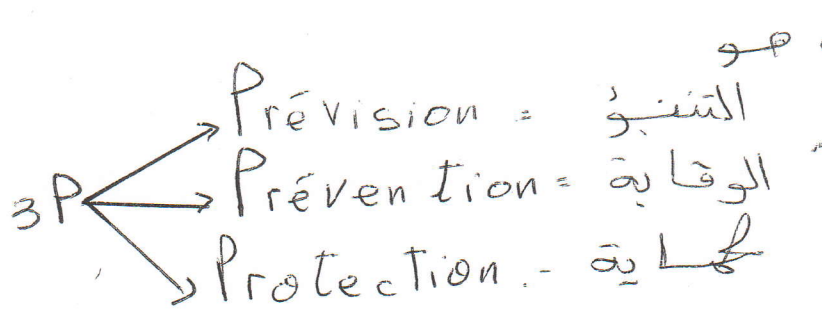 هو
Prévision = التنبؤ
3P Prévention = الوقاية
Protection - حماية